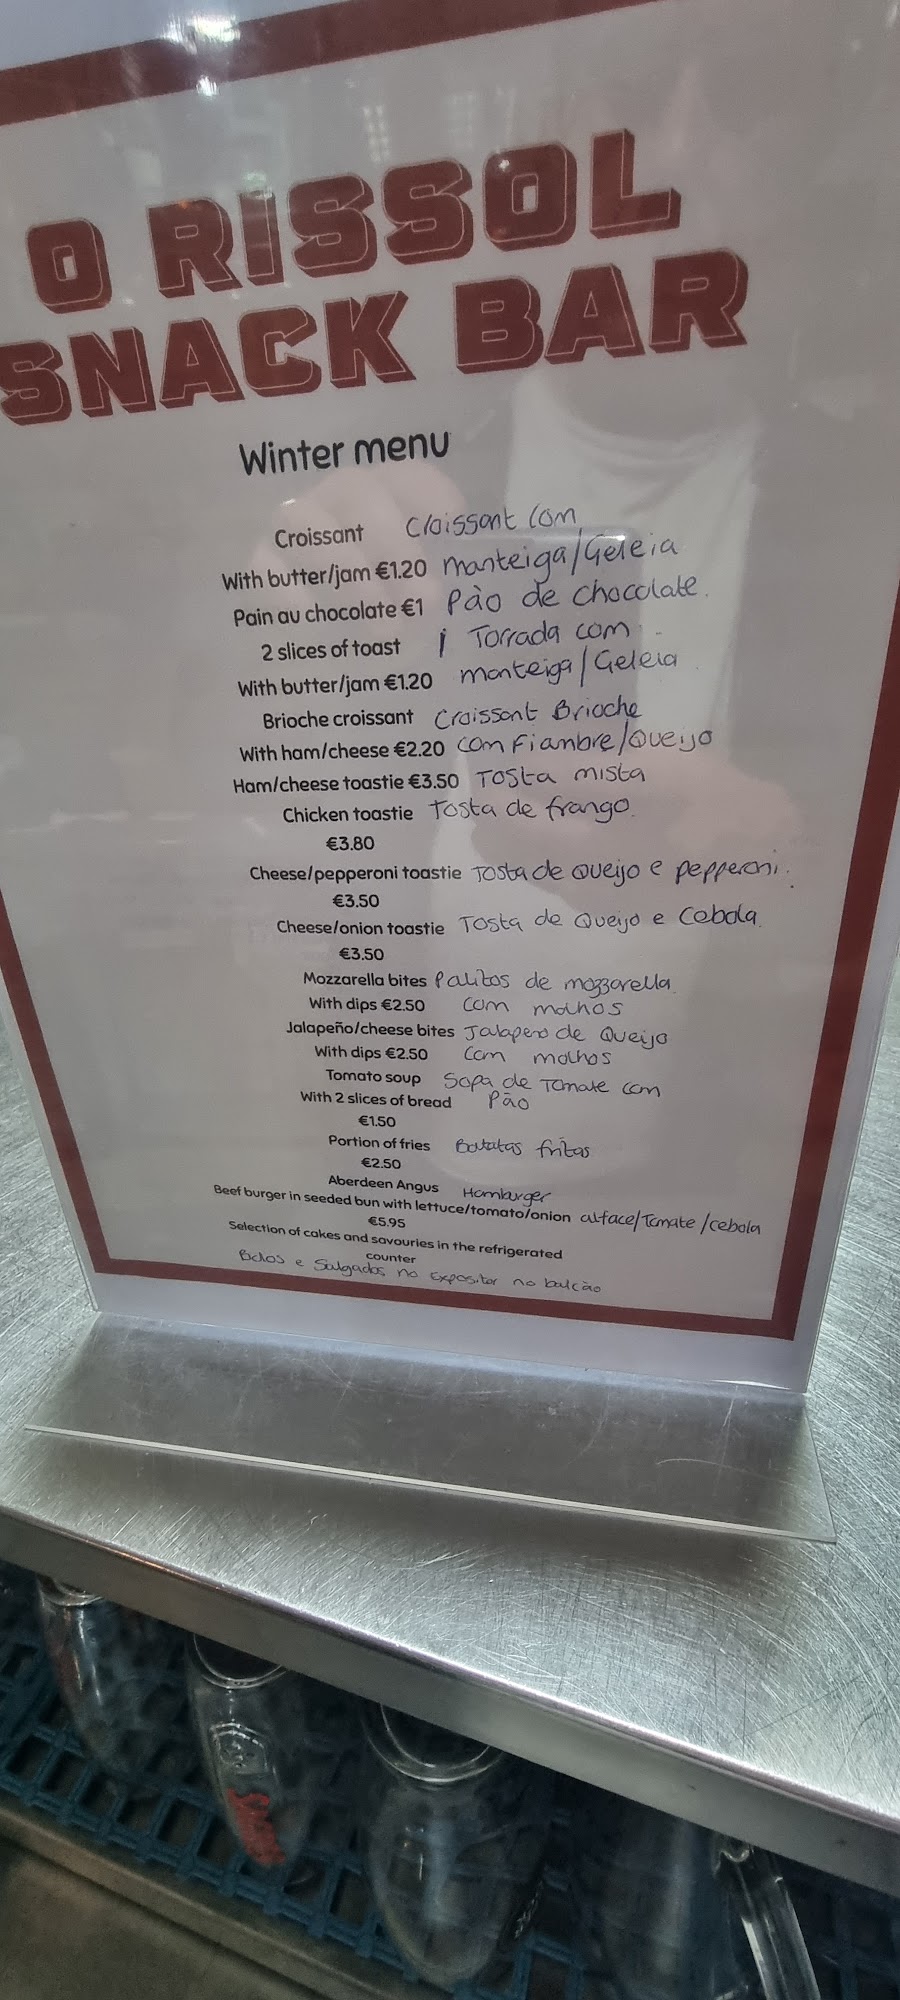 O RISSOL
SNACK BAR
Winter menu
Croissant Croissant com
With butter/jam €1.20 manteiga/Geleia
Pain au chocolate €1 Pão de chocolate.
2 slices of toast 1 Torrada com
With butter/jam €1.20 manteiga/Geleia
Brioche croissant Croissant Brioche
With ham/cheese €2.20 com Fiambre/Queijo
Ham/cheese toastie €3.50 Tosta mista
Chicken toastie Tosta de frango.
€3.80
Cheese/pepperoni toastie Tosta de Queijo e pepperoni.
€3.50
Cheese/onion toastie Tosta de Queijo e Cebola.
€3.50
Mozzarella bites Palitos de mozzarella
With dips €2.50 com molhos
Jalapeño/cheese bites Jalapeno de Queijo
With dips €2.50 com molhos
Tomato soup Sopa de Tomate com
With 2 slices of bread Pão
€1.50
Portion of fries Batatas fritas
€2.50
Aberdeen Angus Hamburger
Beef burger in seeded bun with lettuce/tomato/onion alface/Tomate/cebola
€5.95
Selection of cakes and savouries in the refrigerated
counter
Bolos e Salgados no Expositor no balcão